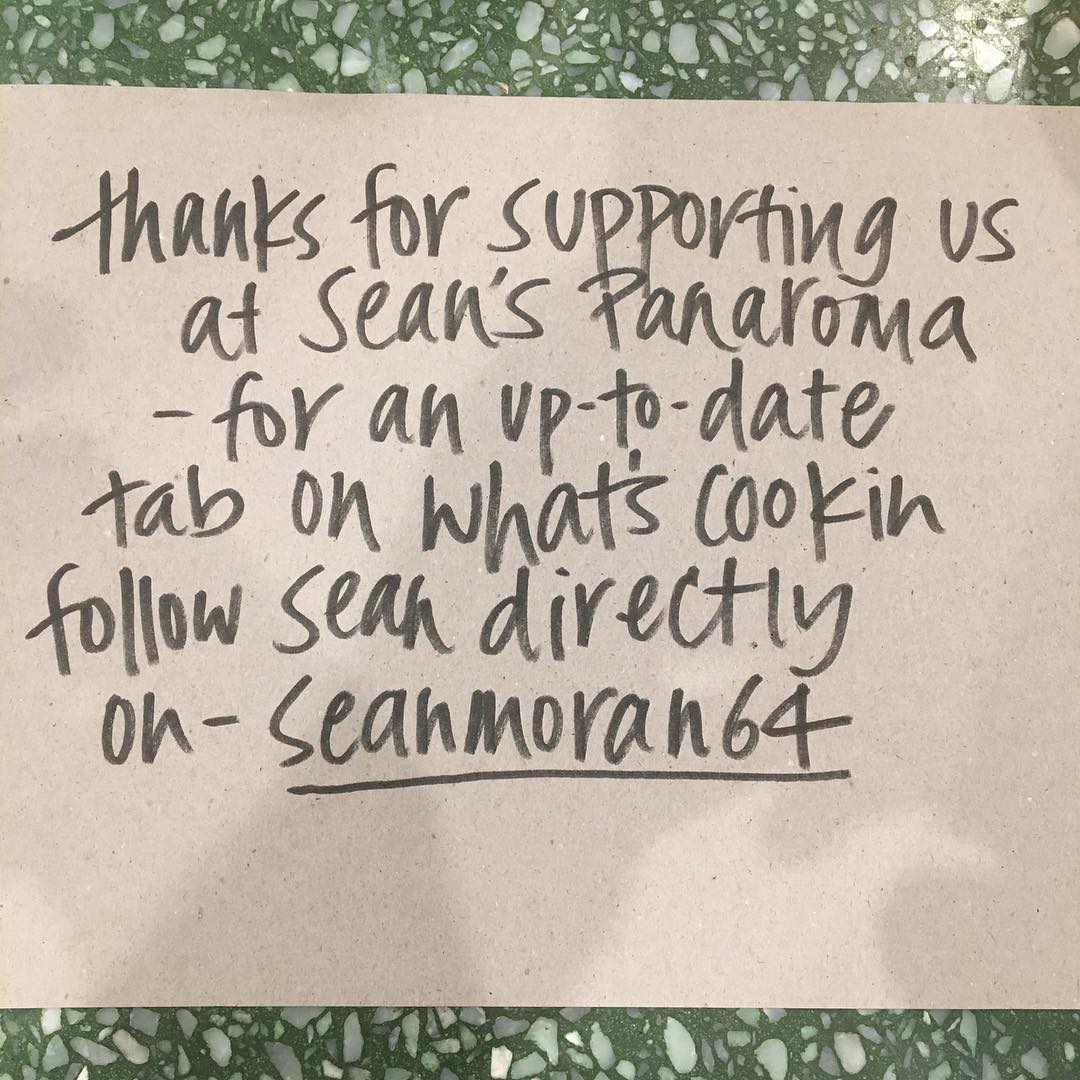 thanks for supporting us
at Sean's Panaroma
- for an up-to-date
tab on what's cookin
follow sean directly
on - seanmoran64